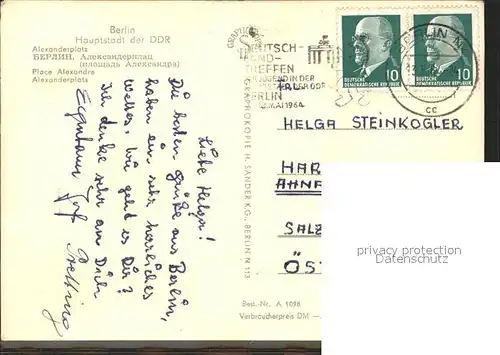 Berlin
Hauptstadt der DDR
Alexanderplatz
БЕРЛИН. Александерплац
(площадь Александра)
Place Alexandre
Alexanderplatz
Liebe Helga!
Die besten Grüße aus Berlin,
haben ein sehr herrliches
Wetter. Wie geht es Dir?
Ich denke sehr an Dich
GRAPHOKOPIE H. SANDER K.G., BERLIN N 113
DEUTSCH-
LAND-
TREFFEN
JUGEND IN DER
DER DDR
BERLIN
MAI 1964
DEUTSCHE
DEMOKRATISCHE REPUBLIK
10
DEUTSCHE
DEMOKRATISCHE REPUBLIK
10
BERLIN
cc
HELGA STEINKOGLER
HAR
SALZ
ÖST
privacy protection
Datenschutz
Best.-Nr. A 1098
Verbraucherpreis DM